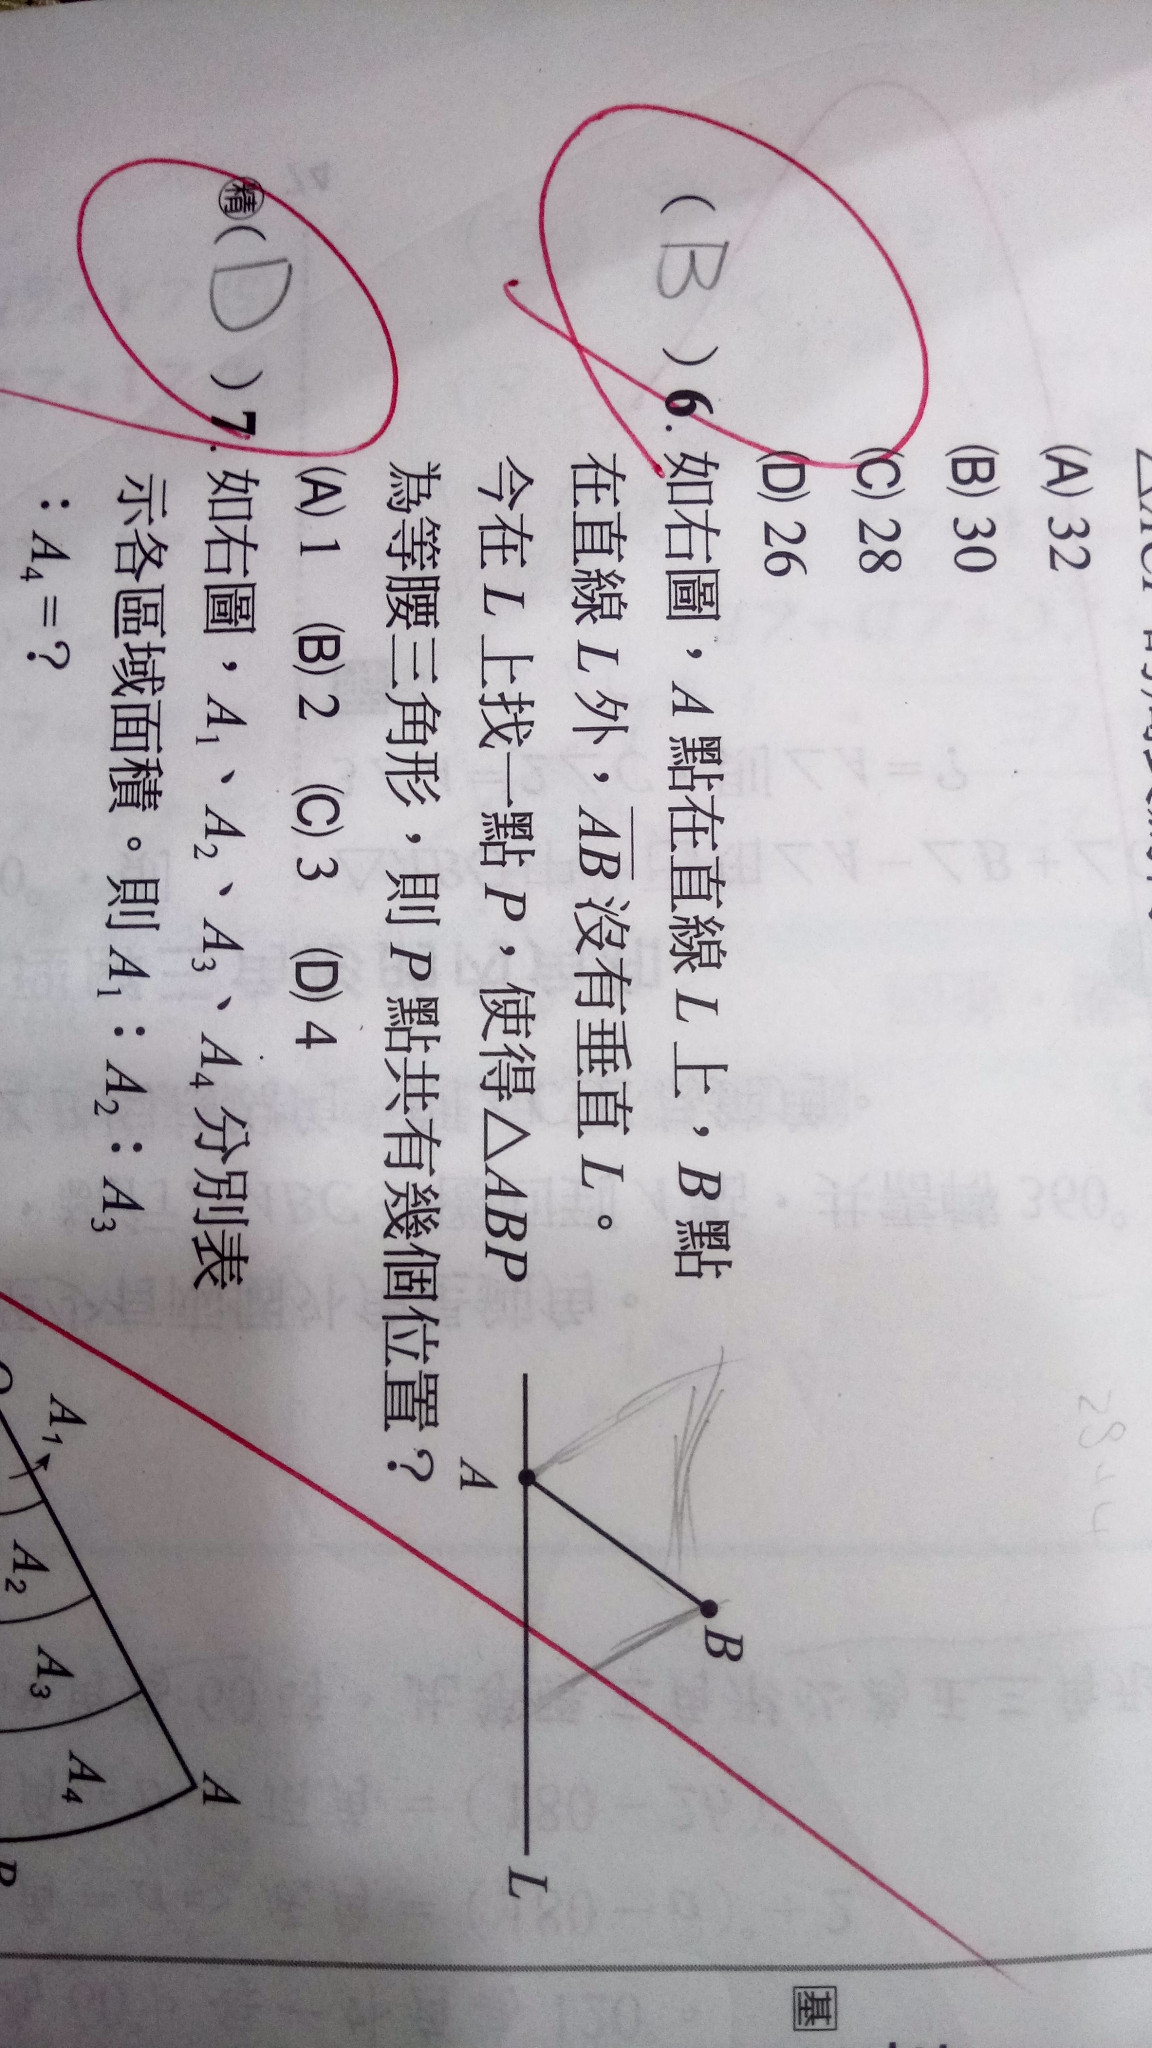 (A) 32
(B) 30
(C) 28
(D) 26
( B ) 6. 如右圖，A 點在直線 L 上，B 點
在直線 L 外，AB 沒有垂直 L。
今在 L 上找一點 P，使得△ABP
為等腰三角形，則 P 點共有幾個位置？
(A) 1 (B) 2 (C) 3 (D) 4
B
A
L
精 ( D ) 7. 如右圖，A₁、A₂、A₃、A₄ 分別表
示各區域面積。則 A₁：A₂：A₃
：A₄ = ?
A
A₁
A₂
A₃
A₄
基